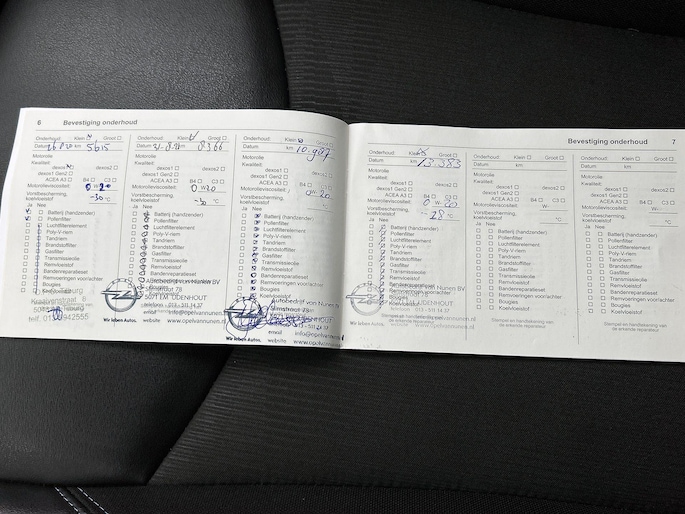 6 Bevestiging onderhoud
Onderhoud: Klein Groot
Datum km 5615
Motorolie
Kwaliteit:
dexos1 dexos2
dexos1 Gen2
ACEA A3 B4 C3
Motorolieviscositeit: 0 W 20
Vorstbescherming,
koelvloeistof -30 °C
Ja Nee
Batterij (handzender)
Pollenfilter
Luchtfilterelement
Poly-V-riem
Tandriem
Brandstoffilter
Gasfilter
Transmissieolie
Remvloeistof
Bandenreparatieset
Remvoeringen voor/achter
Bougies
Koelvloeistof
Onderhoud: Klein Groot
Datum km 8366
Motorolie
Kwaliteit:
dexos1 dexos2
dexos1 Gen2
ACEA A3 B4 C3
Motorolieviscositeit: 0 W 20
Vorstbescherming,
koelvloeistof -30 °C
Ja Nee
Batterij (handzender)
Pollenfilter
Luchtfilterelement
Poly-V-riem
Tandriem
Brandstoffilter
Gasfilter
Transmissieolie
Remvloeistof
Autobedrijf van Nunen BV
5071 EM UDENHOUT
email info@opelvannunen.nl
Wir leben Autos. website www.opelvannunen.nl
Onderhoud: Klein Groot
Datum km 10.907
Motorolie
Kwaliteit:
dexos1 dexos2
dexos1 Gen2
ACEA A3 B4 C3
Motorolieviscositeit: 0 W 20
Vorstbescherming,
koelvloeistof
Ja Nee
Batterij (handzender)
Pollenfilter
Luchtfilterelement
Poly-V-riem
Tandriem
Brandstoffilter
Gasfilter
Transmissieolie
Remvloeistof
Bandenreparatieset
Remvoeringen voor/achter
Bougies
Autobedrijf van Nunen
email info@opelvannunen
Wir leben Autos. website www.opelvannunen
Bevestiging onderhoud 7
Onderhoud: Klein Groot
Datum km 13.383
Motorolie
Kwaliteit:
dexos1 dexos2
dexos1 Gen2
ACEA A3 B4 C3
Motorolieviscositeit: 0 W 20
Vorstbescherming,
koelvloeistof -28 °C
Ja Nee
Batterij (handzender)
Pollenfilter
Luchtfilterelement
Poly-V-riem
Tandriem
Brandstoffilter
Gasfilter
Transmissieolie
Remvloeistof
Wir leben Autos.
Onderhoud: Klein Groot
Datum km:
Motorolie
Kwaliteit:
dexos1 dexos2
dexos1 Gen2
ACEA A3 B4 C3
Motorolieviscositeit: W-
Vorstbescherming,
koelvloeistof °C
Ja Nee
Batterij (handzender)
Pollenfilter
Luchtfilterelement
Poly-V-riem
Tandriem
Brandstoffilter
Gasfilter
Transmissieolie
Remvloeistof
Bandenreparatieset
Remvoeringen voor/achter
Bougies
Koelvloeistof
Stempel en handtekening van
de erkende reparateur
Onderhoud: Klein Groot
Datum km
Motorolie
Kwaliteit:
dexos1 dexos2
dexos1 Gen2
ACEA A3 B4 C3
Motorolieviscositeit: W-
Vorstbescherming,
koelvloeistof °C
Ja Nee
Batterij (handzender)
Pollenfilter
Luchtfilterelement
Poly-V-riem
Tandriem
Brandstoffilter
Gasfilter
Transmissieolie
Remvloeistof
Bandenreparatieset
Remvoeringen voor/achter
Bougies
Koelvloeistof
Stempel en handtekening van
de erkende reparateur